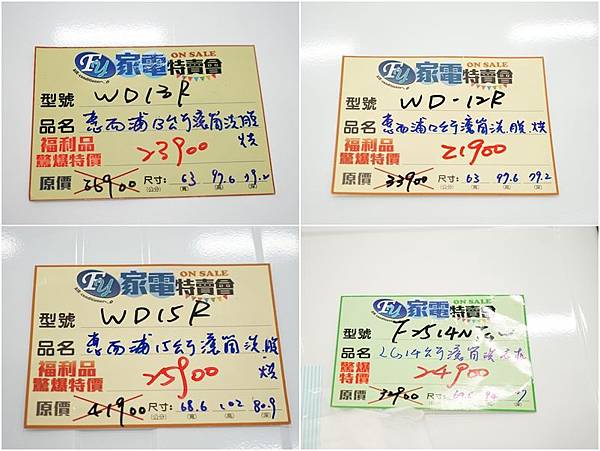 Fy 家電特賣會 ON SALE
型號 WD13R
品名 惠而浦13公斤滾筒洗脫烘
福利品
驚爆特價 23900
原價 36900 尺寸: 63 97.6 79.2
(公分) (寬) (高) (深)
Fy 家電特賣會 ON SALE
型號 WD-12R
品名 惠而浦12公斤滾筒洗.脫.烘
福利品
驚爆特價 21900
原價 33900 尺寸: 63 97.6 79.2
(公分) (寬) (高) (深)
Fy 家電特賣會 ON SALE
型號 WD15R
品名 惠而浦15公斤滾筒洗.脫.烘
福利品
驚爆特價 25900
原價 41900 尺寸: 68.6 102 80.9
(公分) (寬) (高) (深)
Fy 家電特賣會 ON SALE
型號
品名 LG14公斤滾筒洗衣機
驚爆
特價 24900
原價 尺寸:
(公分)